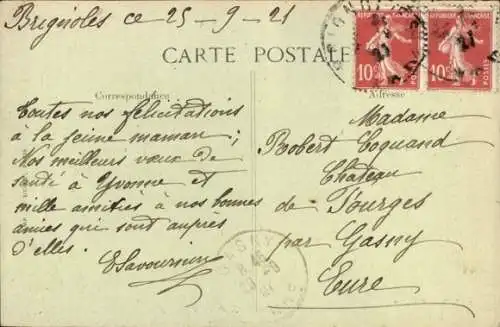 Brignoles ce 25-9-21
CARTE POSTALE
Correspondance
Adresse
Toutes nos félicitations
à la jeune maman;
Nos meilleurs vœux de
santé à Yvonne et
mille amitiés à nos bonnes
amies qui sont auprès
d'elles.
Madame
Robert Coquand
Château
de Fourges
par Gasny
Eure
10c
POSTES
10c
POSTES
GASNY